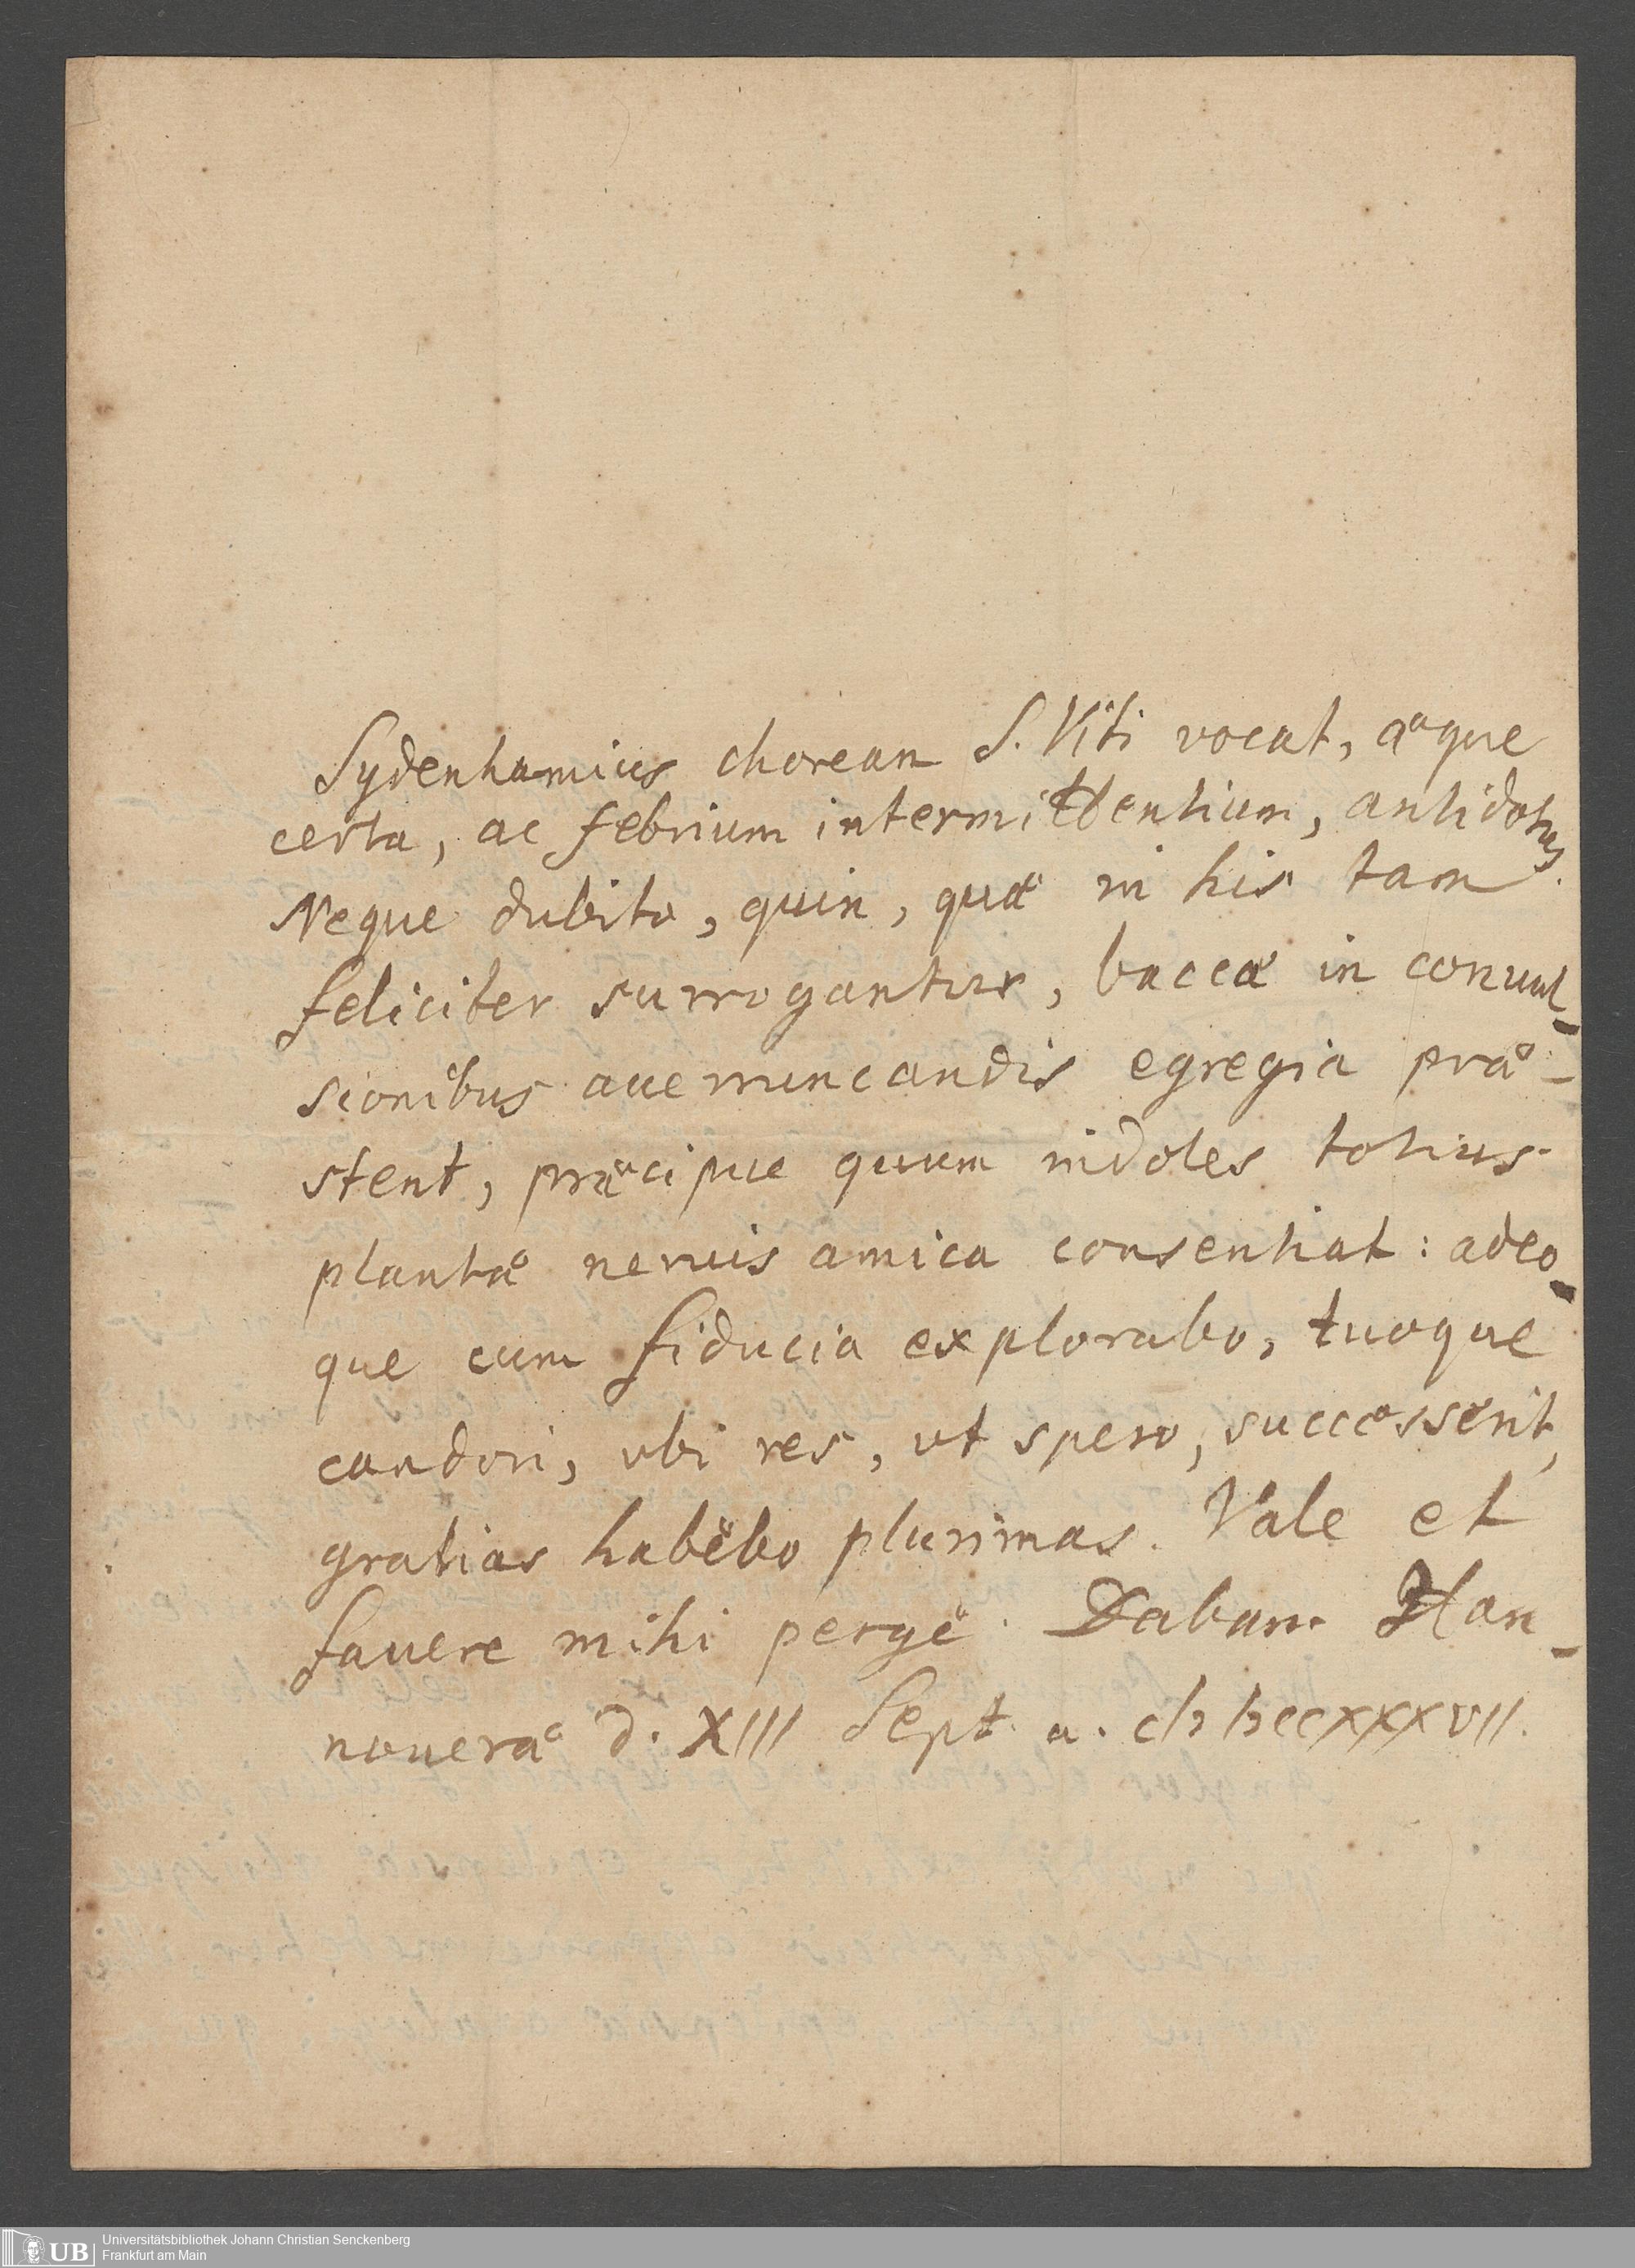 Sydenhamius choream S. Viti vocat, aeque
certa, ac febrium intermittentium, antidotus.
Neque dubito, quin, quae in his tam
feliciter surrogantur, baccae in conuul-
sionibus auerruncandis egregia prae-
stent, praecipue quum indoles totius
plantae neruis amica consentiat: adeo-
que cum fiducia explorabo, tuoque
candori, vbi res, vt spero, successerit,
gratias habebo plurimas. Vale et
fauere mihi perge. Dabam Han-
nouerae d. XIII Sept. a. cIɔ Iɔccxxxvii.
UB
Universitätsbibliothek Johann Christian Senckenberg
Frankfurt am Main